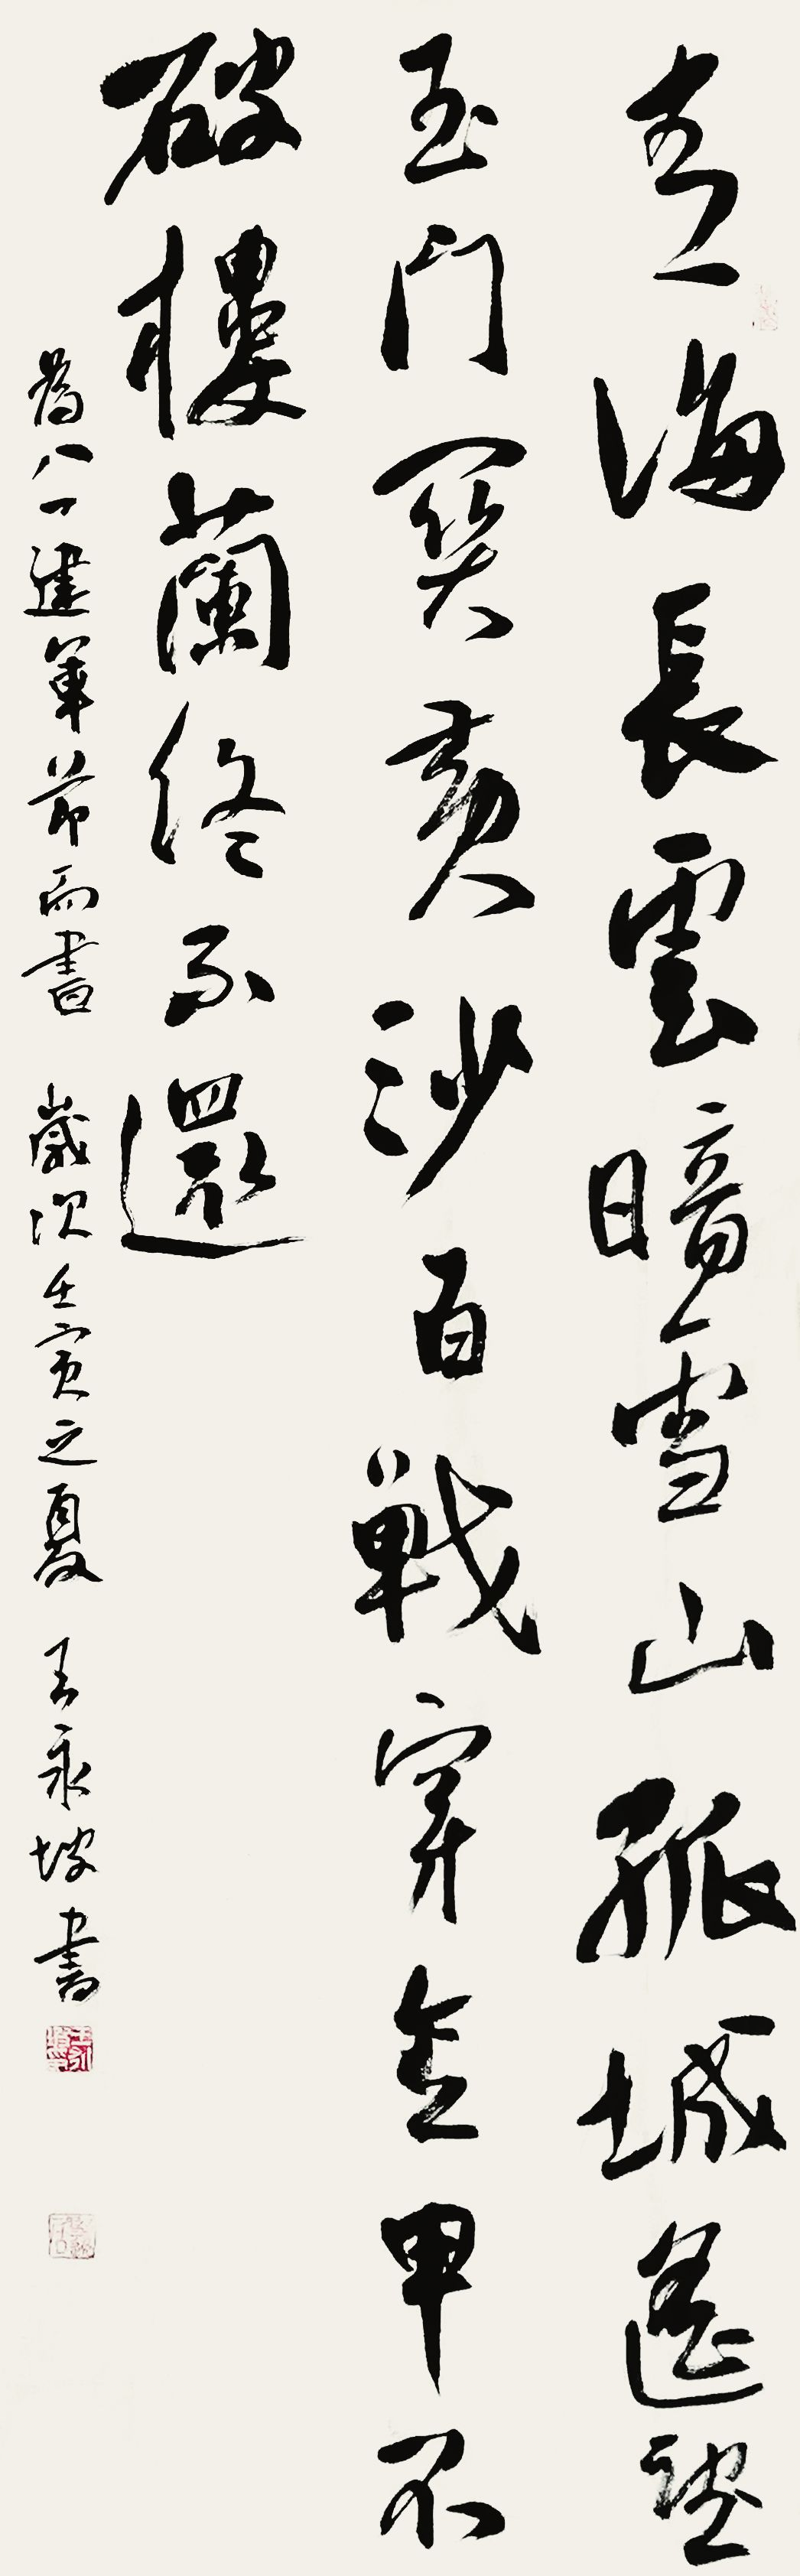 青海長雲暗雪山孤城遙望
玉門関黄沙百戰穿金甲不
破樓蘭終不還
為八一建軍節而書 歲次壬寅之夏 王永坡書